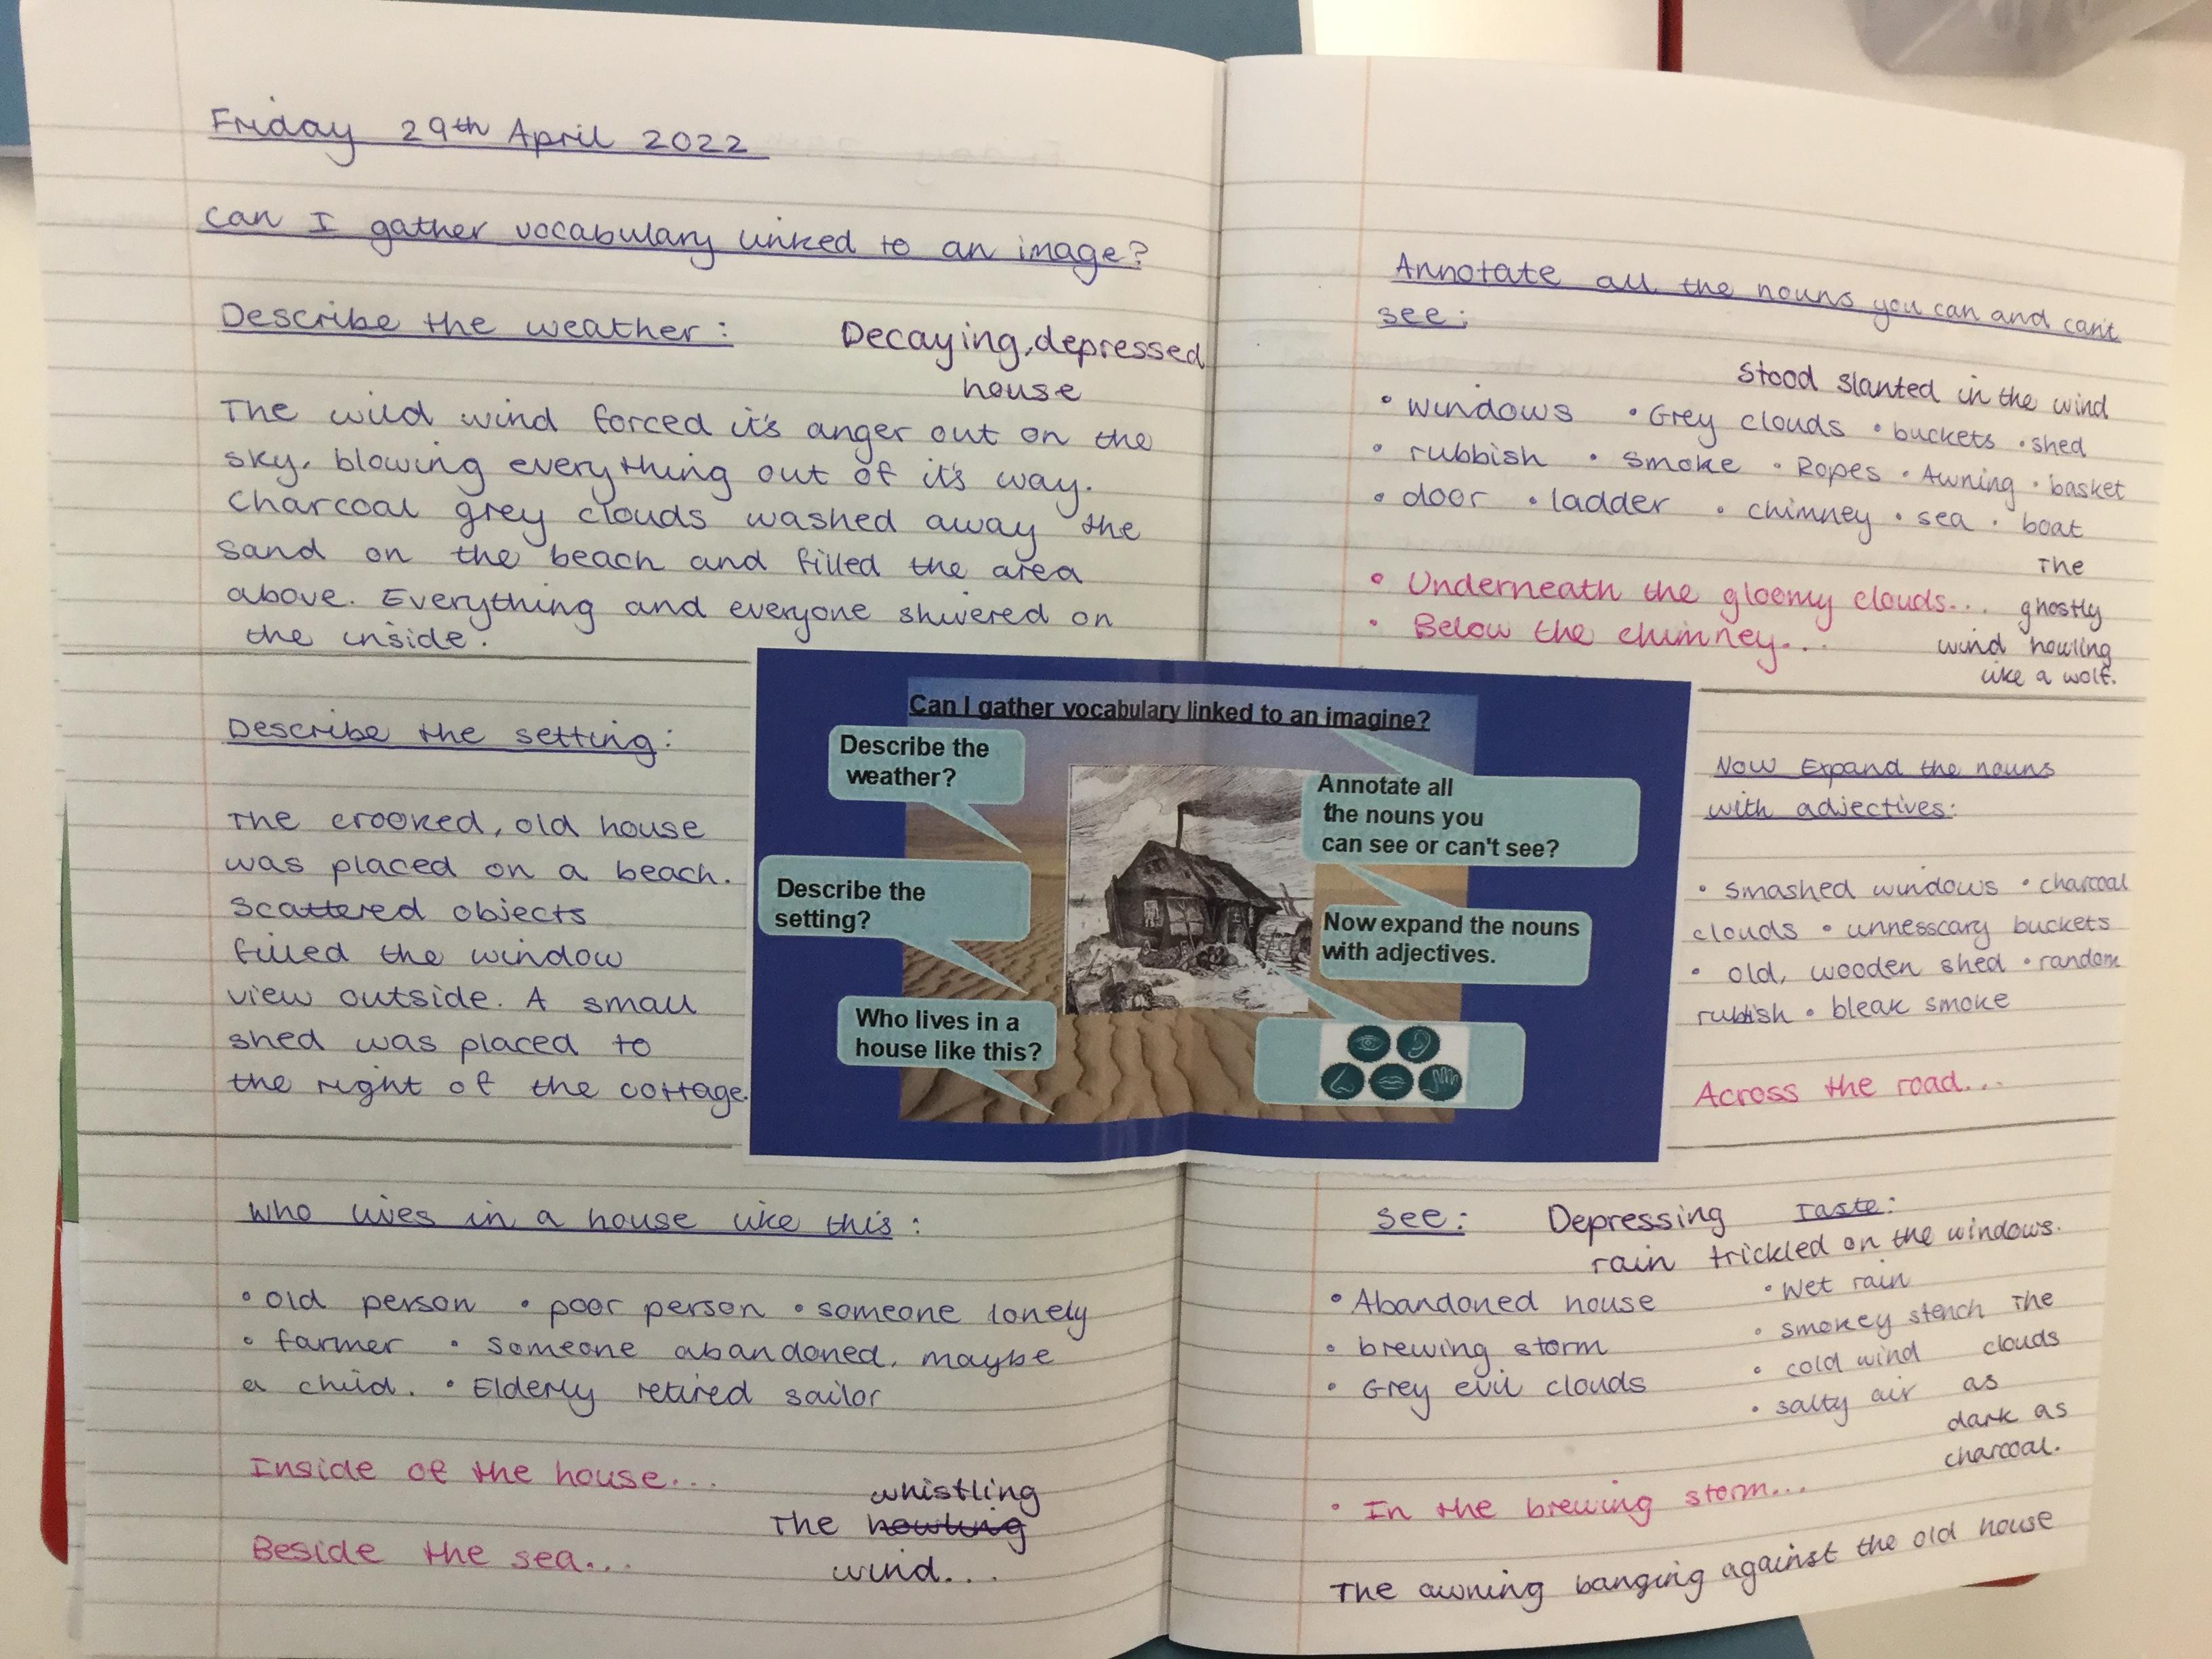 Friday 29th April 2022
Can I gather vocabulary linked to an image?
Describe the weather:
Decaying, depressed
house
The wild wind forced it's anger out on the
sky, blowing everything out of it's way.
Charcoal grey clouds washed away the
sand on the beach and filled the area
above. Everything and everyone shivered on
the inside.
Describe the setting:
The crooked, old house
was placed on a beach.
Scattered objects
filled the window
view outside. A small
shed was placed to
the right of the cottage.
Who lives in a house like this:
• old person • poor person • someone lonely
• farmer • someone abandoned, maybe
a child. • Elderly retired sailor
Inside of the house...
Beside the sea...
whistling
The howling
wind...
Can I gather vocabulary linked to an imagine?
Describe the
weather?
Describe the
setting?
Who lives in a
house like this?
Annotate all
the nouns you
can see or can't see?
Now expand the nouns
with adjectives.
Annotate all the nouns you can and can't
see:
Stood slanted in the wind
• windows • Grey clouds • buckets • shed
• rubbish • smoke • Ropes • Awning • basket
• door • ladder • chimney • sea • boat
• Underneath the gloomy clouds...
• Below the chimney...
The
ghostly
wind howling
like a wolf.
Now Expand the nouns
with adjectives:
• smashed windows • charcoal
clouds • unnesscary buckets
• old, wooden shed • random
rubbish • bleak smoke
Across the road...
see:
Depressing
rain trickled on the windows.
• Abandoned house
• brewing storm
• Grey evil clouds
Taste:
• Wet rain
• smokey stench
• cold wind
• salty air
The
clouds
as
dark as
charcoal.
• In the brewing storm...
The awning banging against the old house